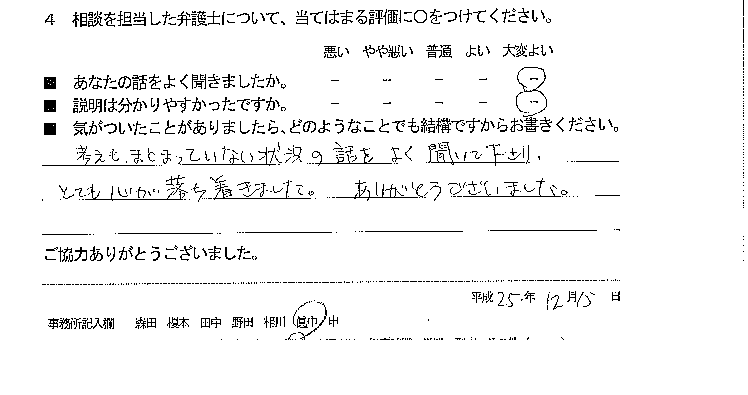 4 相談を担当した弁護士について、当てはまる評価に○をつけてください。
悪い やや悪い 普通 よい 大変よい
■ あなたの話をよく聞きましたか。 - - - - -
■ 説明は分かりやすかったですか。 - - - - -
■ 気がついたことがありましたら、どのようなことでも結構ですからお書きください。
考えもまとまっていない状況の話をよく聞いて下さり、
とても心が落ち着きました。 ありがとうございました。
ご協力ありがとうございました。
平成25年12月15日
事務所記入欄 森田 榎本 田中 野田 相川 眞中